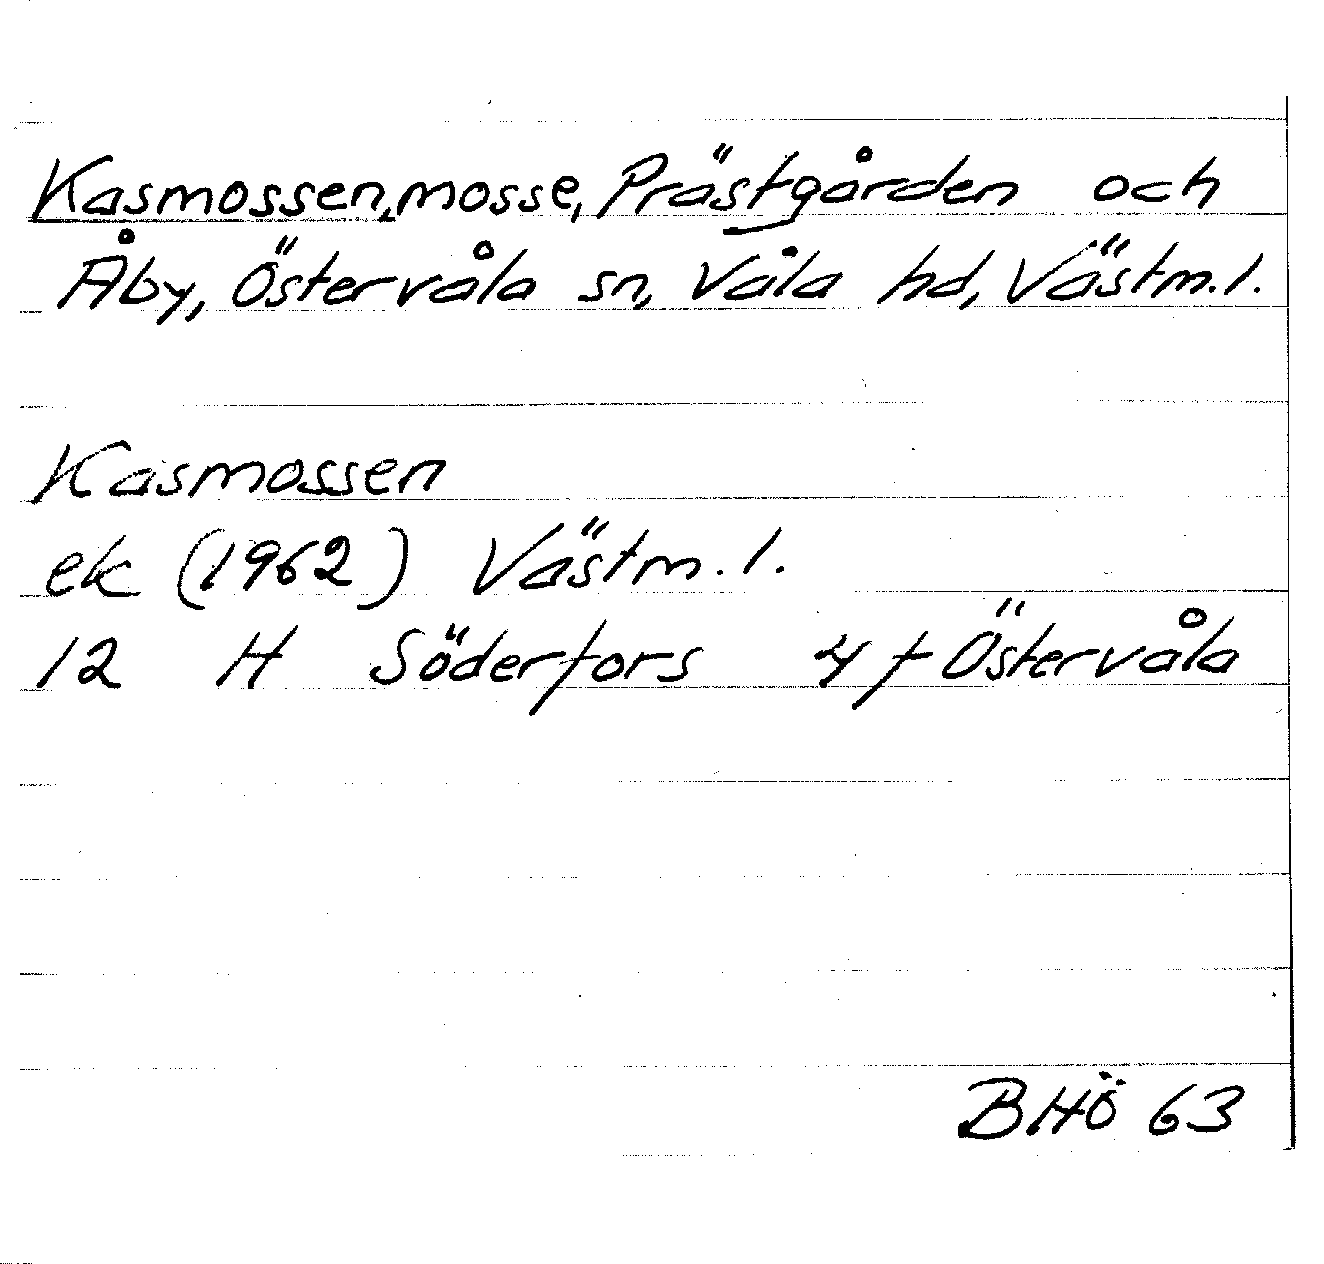 Kasmossen, mosse, Prästgården och
Åby, Östervåla sn, Våla hd, Västm. l.
Kasmossen
ek (1962) Västm. l.
12 H Söderfors 4 f Östervåla
BHÖ 63